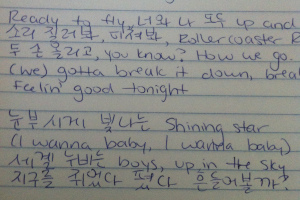 Ready to fly, 너와 나 모두 up and
소리 질러봐, 미쳐봐, Rollercoaster R
두 손 올리고, you know? How we go.
(we) gotta break it down, brea
Feelin' good tonight
눈부시게 빛나는 Shining star
(I wanna baby, I wanna baby)
세계를 누비는 boys, up in the sky
지구를 쥐었다 폈다 흔들어볼까?